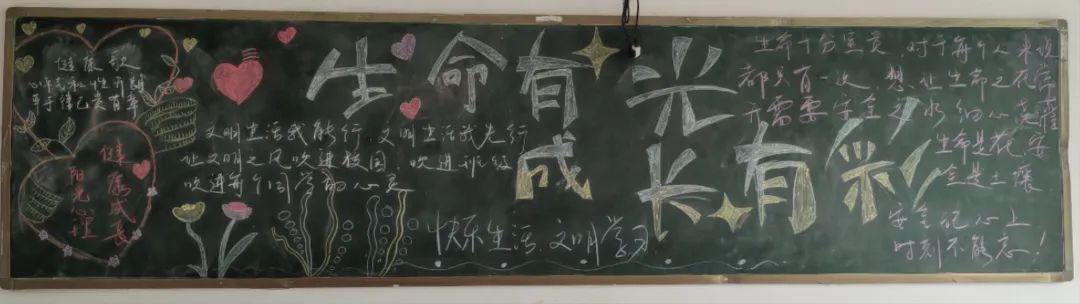 健康歌
心怀宽和性开朗
健康成长
阳光心理
生命有光
成长有彩
文明生活我能行,文明生活我先行
让文明之风吹进校园,吹进班级
吹进每个同学的心灵
快乐生活,文明学习
生命十分宝贵,对于每个人来说
都只有一次,想让生命之花
开需要安全之水,细心
生命是花,安
全是土壤
安全记心上
时刻不能忘!